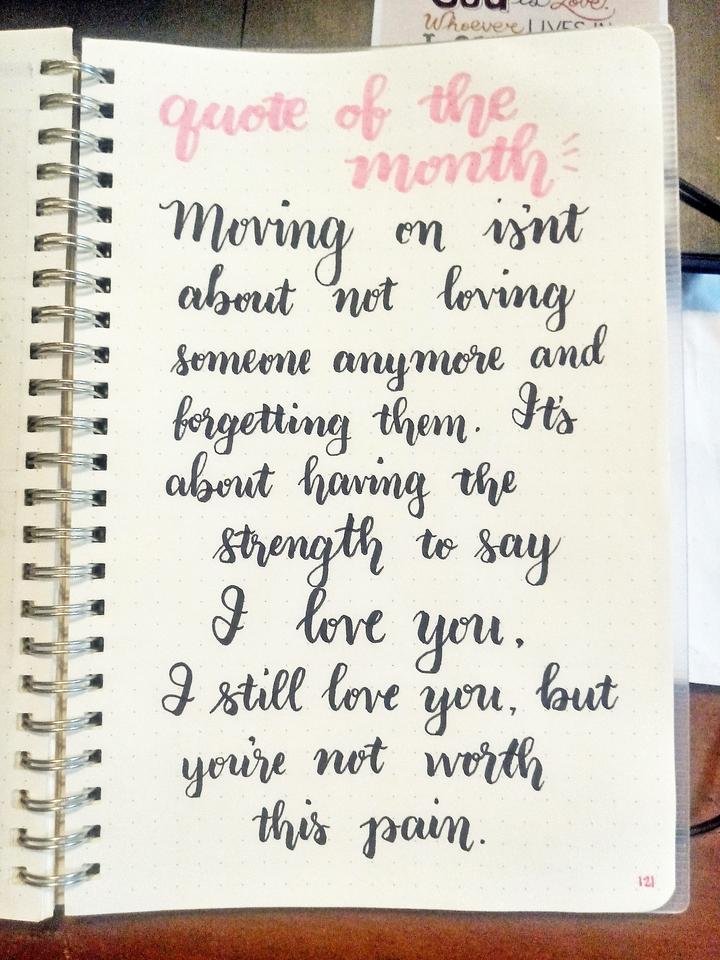 God is Love.
Whoever LIVES IN
quote of the
month
Moving on isn't
about not loving
someone anymore and
forgetting them. It's
about having the
strength to say
I love you,
I still love you, but
you're not worth
this pain.
121